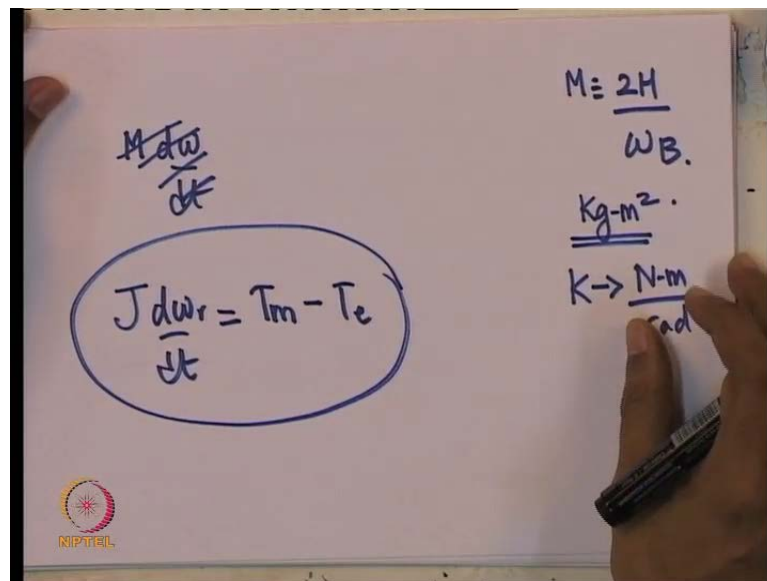 M dω
dt
J dωr = Tm − Te
dt
M ≡ 2H
ωB.
Kg-m².
K → N-m
rad
NPTEL